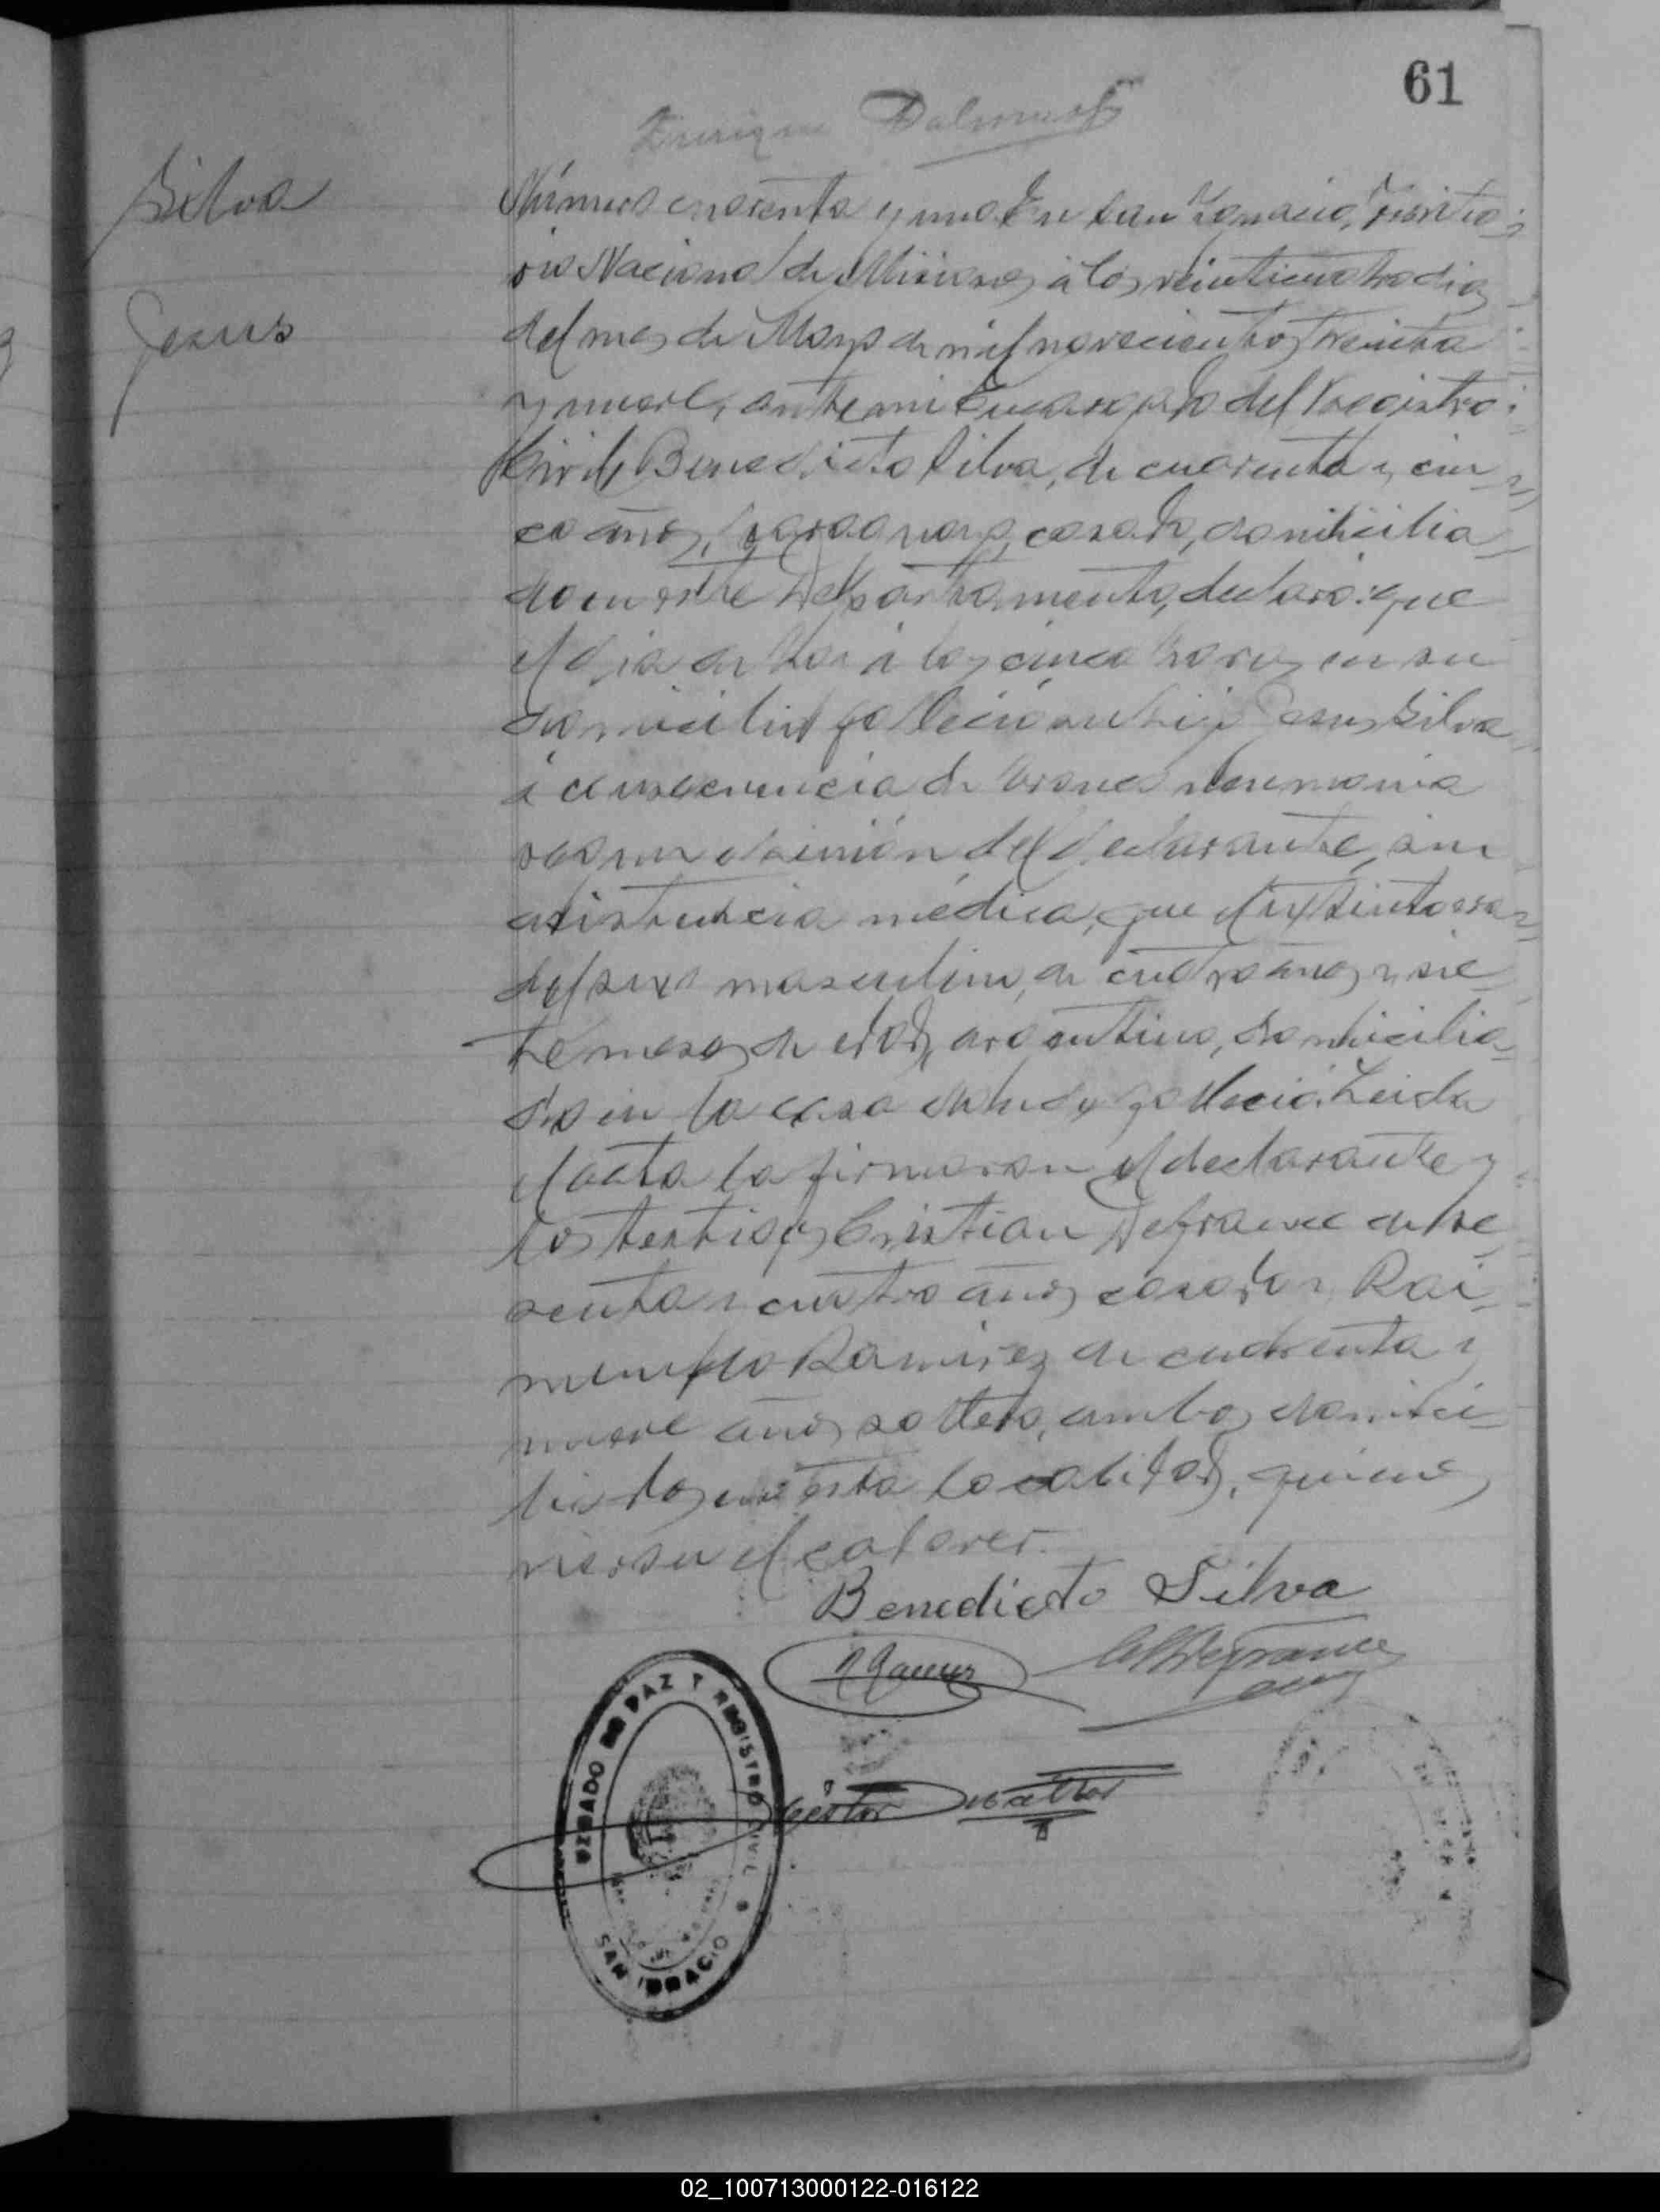 61
Enrique
Silva
Jesus
Número cuarenta y uno En San Ignacio, Territo-
rio Nacional de Misiones, á los veinticuatro dias
del mes de Mayo de mil novecientos treinta
y nueve, ante mi Encargado del Registro
Civil, Benedicto Silva, de cuarenta y cin-
co años, paraguayo, casado, domicilia-
do en este Departamento, declaró: que
el dia de hoy á las cinco horas en su
domicilio falleció su hijo Jesus Silva
á consecuencia de bronco neumonia
según opinión del declarante, sin
asistencia médica, que el extinto era
del sexo masculino, de cuatro años y sie-
te meses de edad, argentino, domicilia-
do en la casa donde falleció. Leida
el acta la firmaron el declarante y
los testigos Cristian Defrance de se-
senta y cuatro años casado y Rai-
mundo Ramirez de cuarenta y
nueve años soltero, ambos domici-
liados en esta localidad, quienes
vieron el cadaver.
Benedicto Silva
JUZGADO DE PAZ Y REGISTRO CIVIL
SAN IGNACIO
02_100713000122-016122